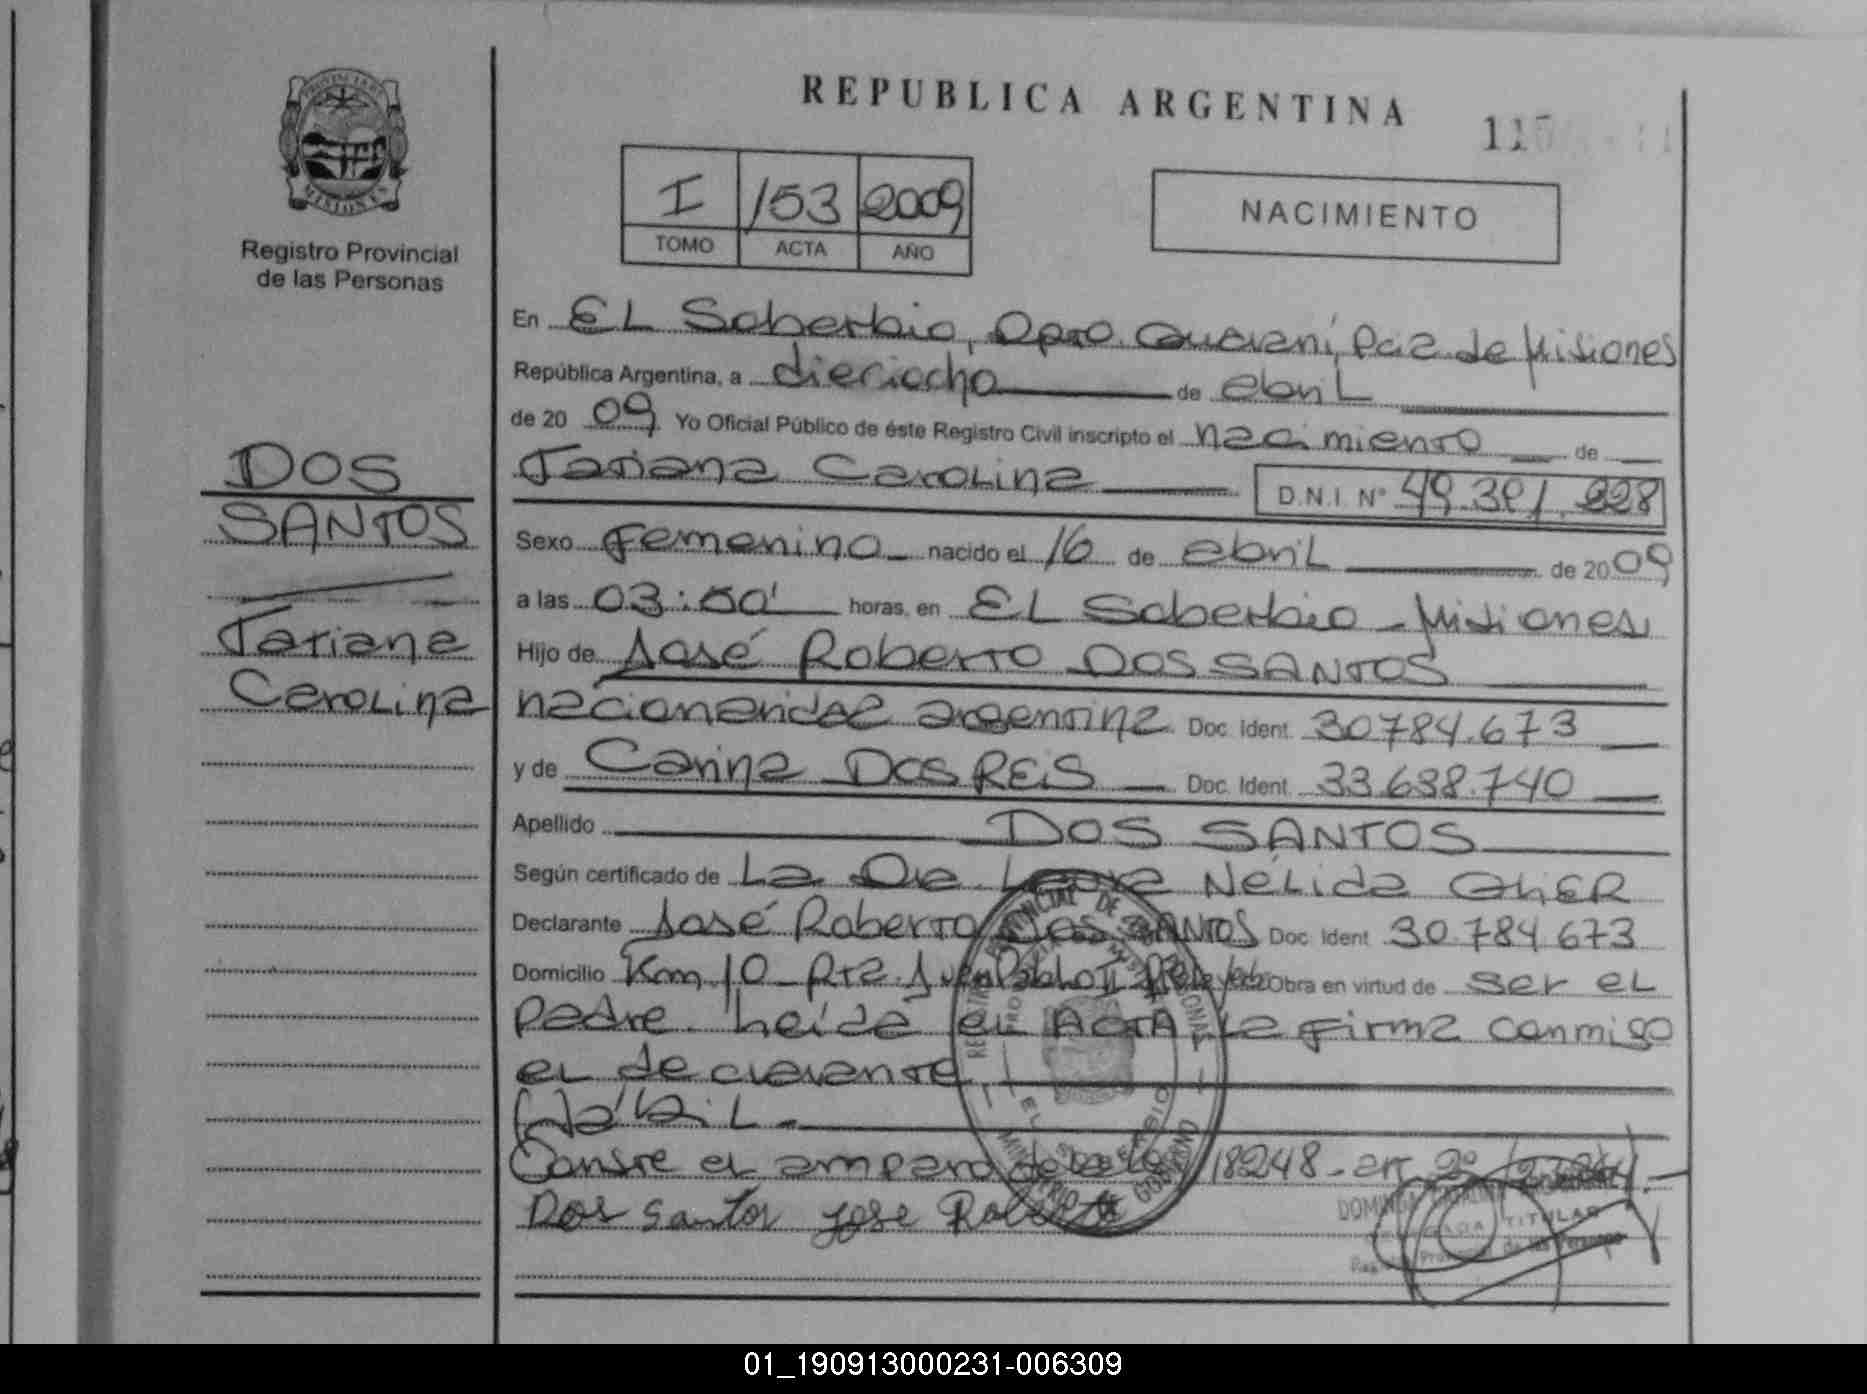 REPUBLICA ARGENTINA
PROVINCIA DE
MISIONES
Registro Provincial
de las Personas
I 153 2009
TOMO ACTA AÑO
NACIMIENTO
DOS
SANTOS
Tatiana
Carolina
En El Soberbio, Dpto. Guaraní, Pcia de Misiones
República Argentina, a dieciocho de abril
de 2009 Yo Oficial Público de éste Registro Civil inscripto el nacimiento de
Tatiana Carolina D.N.I. Nº 49.391.228
Sexo Femenino nacido el 16 de abril de 2009
a las 03:50' horas, en El Soberbio - Misiones
Hijo de José Roberto DOS SANTOS
nacionalidad argentina Doc. Ident. 30784.673
y de Carina DOS REIS Doc. Ident. 33.638.740
Apellido DOS SANTOS
Según certificado de La Dra. Laura Nélida
Declarante José Roberto DOS SANTOS Doc. Ident 30.784.673
Domicilio Km 10 Pta. Juan Pablo II Obra en virtud de ser el
padre. Leída el ACTA la firma conmigo
el declarante
Hábil.-
Conste el amparo de la ley 18248 - art 2º
Dos Santos jose Roberto
TITULAR
de las Personas
01_190913000231-006309